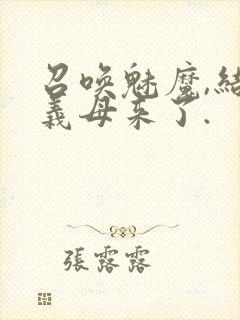 召唤魅魔,結
義母来了.
張露露